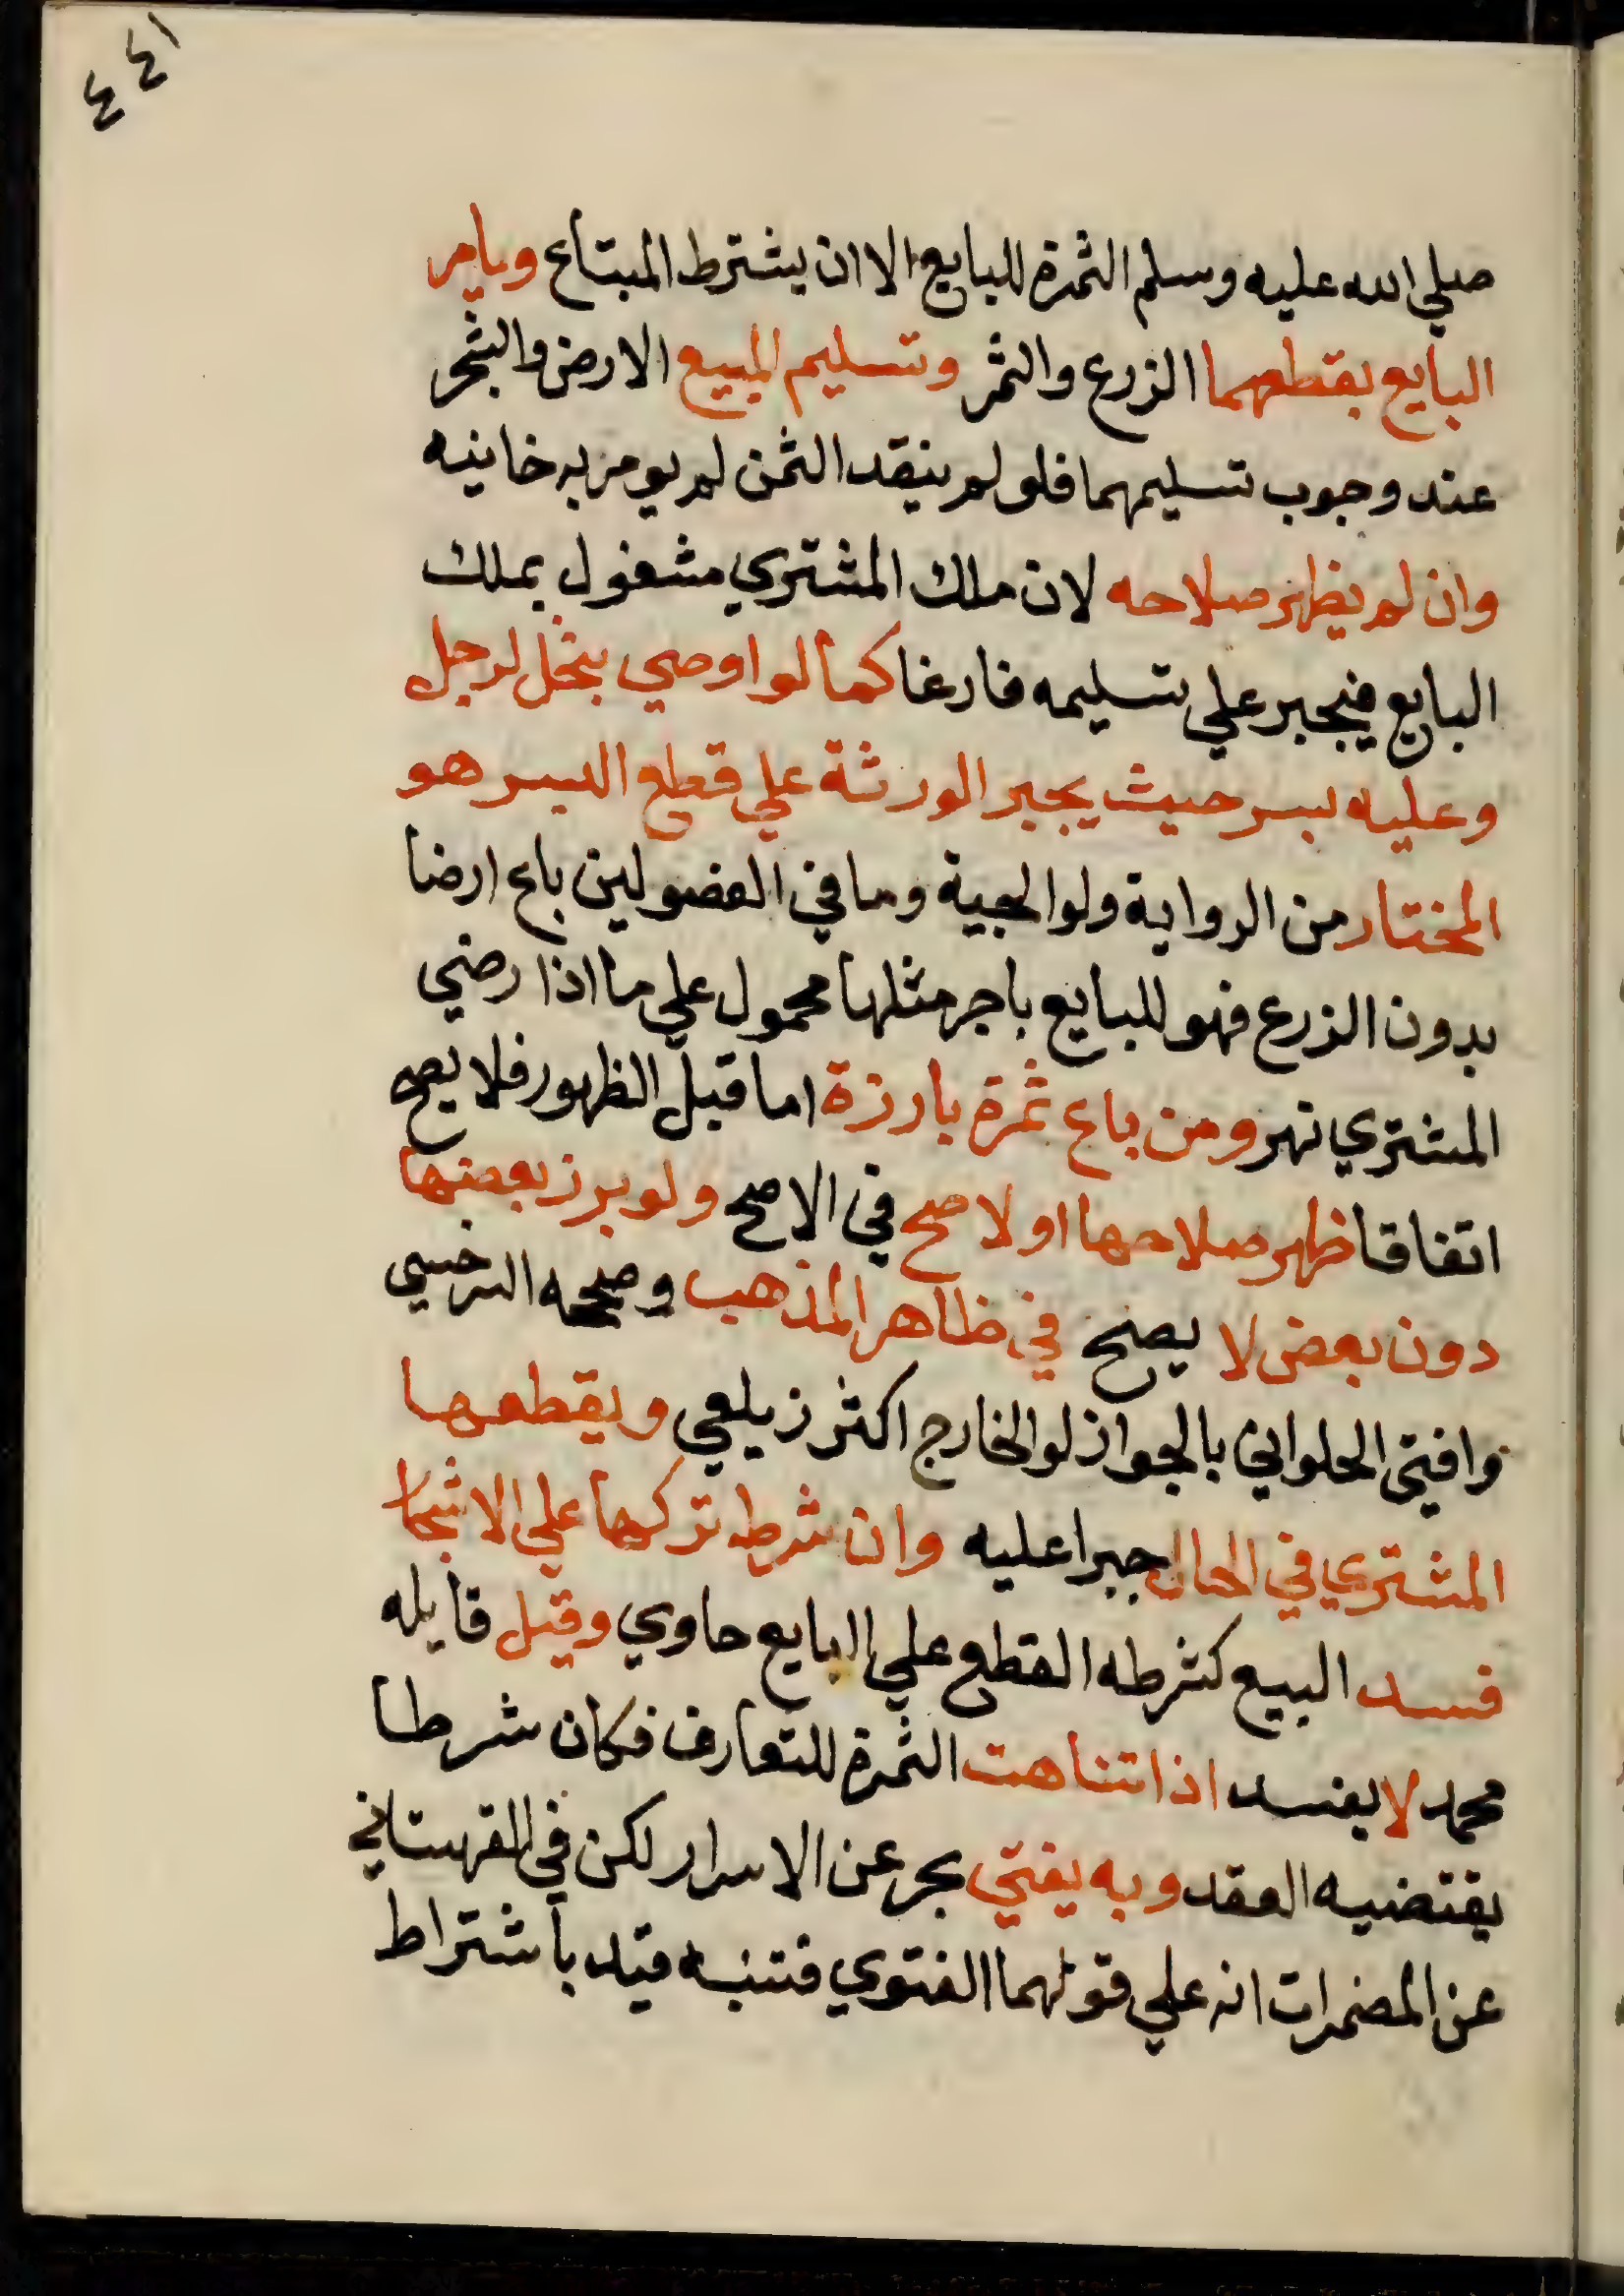 ٤٤١
صلي الله عليه وسلم الثمرة للبايع الا ان يشترط المبتاع ويامر
البايع بقطعهما الزرع والثمر وتسليم المبيع الارض والشجر
عند وجوب تسليمهما فلو لم ينقد الثمن لم يومر به خانيه
وان لم يظهر صلاحه لان ملك المشتري مشغول بملك
البايع فيجبر علي تسليمه فارغا كما لو اوصي بنخل لرجل
وعليه بسر حيث يجبر الورثة علي قطع البسر هو
المختار من الرواية ولوالجية وما في الفصولين باع ارضا
بدون الزرع فهو للبايع باجر مثلها محمول علي ما اذا رضي
المشتري نهر ومن باع ثمرة بارزة اما قبل الظهور فلا يصح
اتفاقا ظهر صلاحها اولا صح في الاصح ولو برز بعضها
دون بعض لا يصح في ظاهر المذهب وصححه السرخسي
وافتي الحلواني بالجواز لو الخارج اكثر زيلعي ويقطعها
المشتري في الحال جبرا عليه وان شرط تركها علي الاشجار
فسد البيع كشرطه القطع علي البايع حاوي وقيل قايله
محمد لا يفسد اذا تناهت الثمرة للتعارف فكان شرطا
يقتضيه العقد وبه يفتي بحر عن الاسرار لكن في القهستاني
عن المضمرات انه علي قولهما الفتوي فتنبه قيد باشتراط